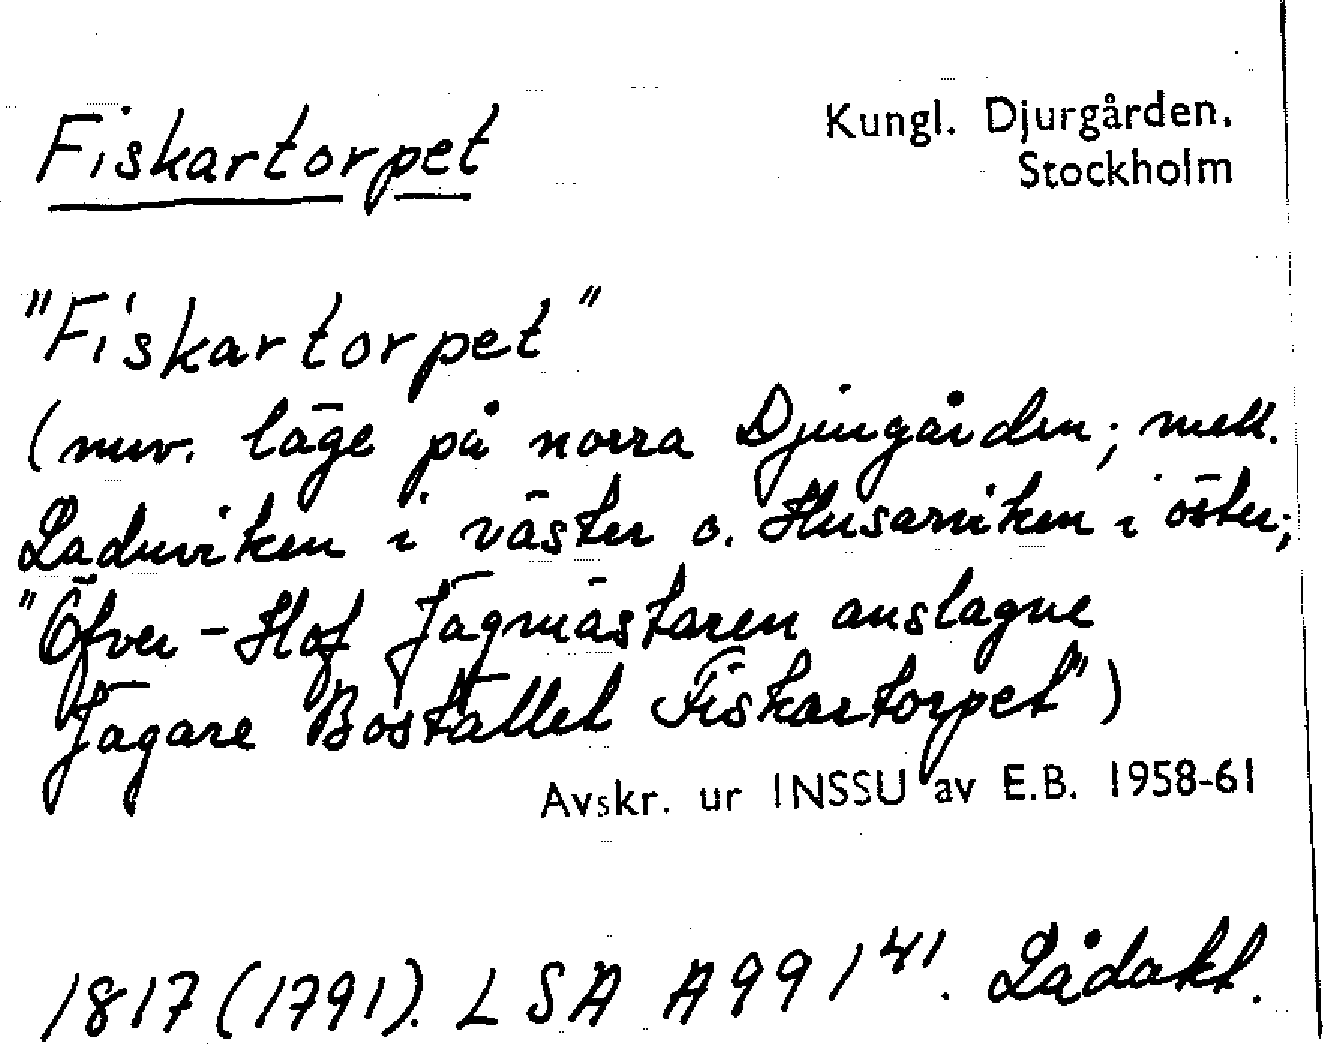 Fiskartorpet
Kungl. Djurgården.
Stockholm
"Fiskartorpet"
(nuv. läge på norra Djurgården; mell.
Laduviken i väster o. Husarviken i öster;
"Öfver-Hof Jägmästaren anslagne
Jägare Bostället Fiskartorpet")
Avskr. ur INSSU av E.B. 1958-61
1817 (1791). LSA A99 1⁴¹. Lådakt.